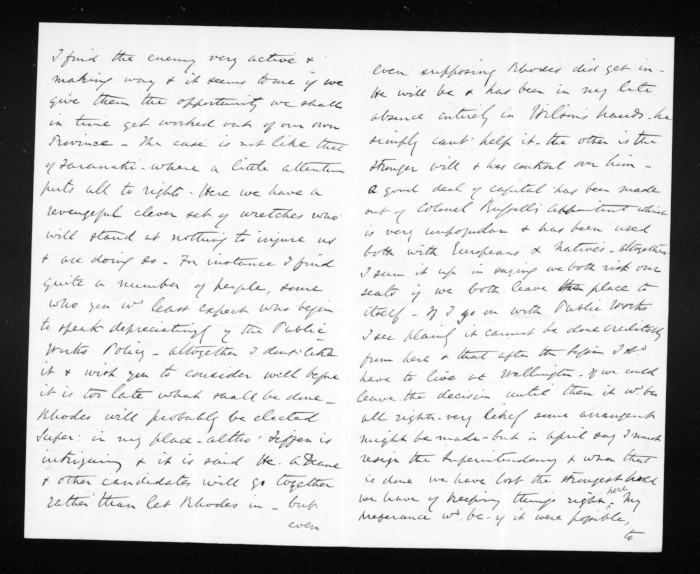 I find the enemy very active &
making way & it seems to me if we
give them the opportunity we shall
in time get worked out of our own
Province – The case is not like that
of Taranaki – where a little attention
puts all to rights – Here we have a
revengeful clever set of wretches who
will stand at nothing to injure us
& are doing so – For instance I find
quite a number of people, some
who you wd. least expect who begin
to speak depreciatingly of the Public
Works Policy – altogether I don't like
it & wish you to consider well before
it is too late what shall be done –
Rhodes will probably be elected
Super: in my place – altho'  is
intriguing & it is said He. 
& other candidates will go together
rather than let Rhodes in – but
even
even supposing Rhodes did get in –
He will be & has been in my late
absence entirely in Wilson's hands – he
simply can't help it – the other is the
stronger will & has control over him –
a good deal of capital has been made
out of Colonel Russell's appointment which
is very unpopular & has been used
both with Europeans & Natives – altogether
I sum it up in saying we both risk our
seats if we both leave the place to
itself – If I go on with Public Works
I see plainly it cannot be done creditably
from here & that after the session I shd.
have to live at Wellington – if we could
leave the decision until then it wd. be
all right – very likely some arrangemt
might be made – but in April say I must
resign the Superintendency & when that
is done we have lost the strongest hold
we have of keeping things right here – My
preferance wd. be – if it were possible,
to